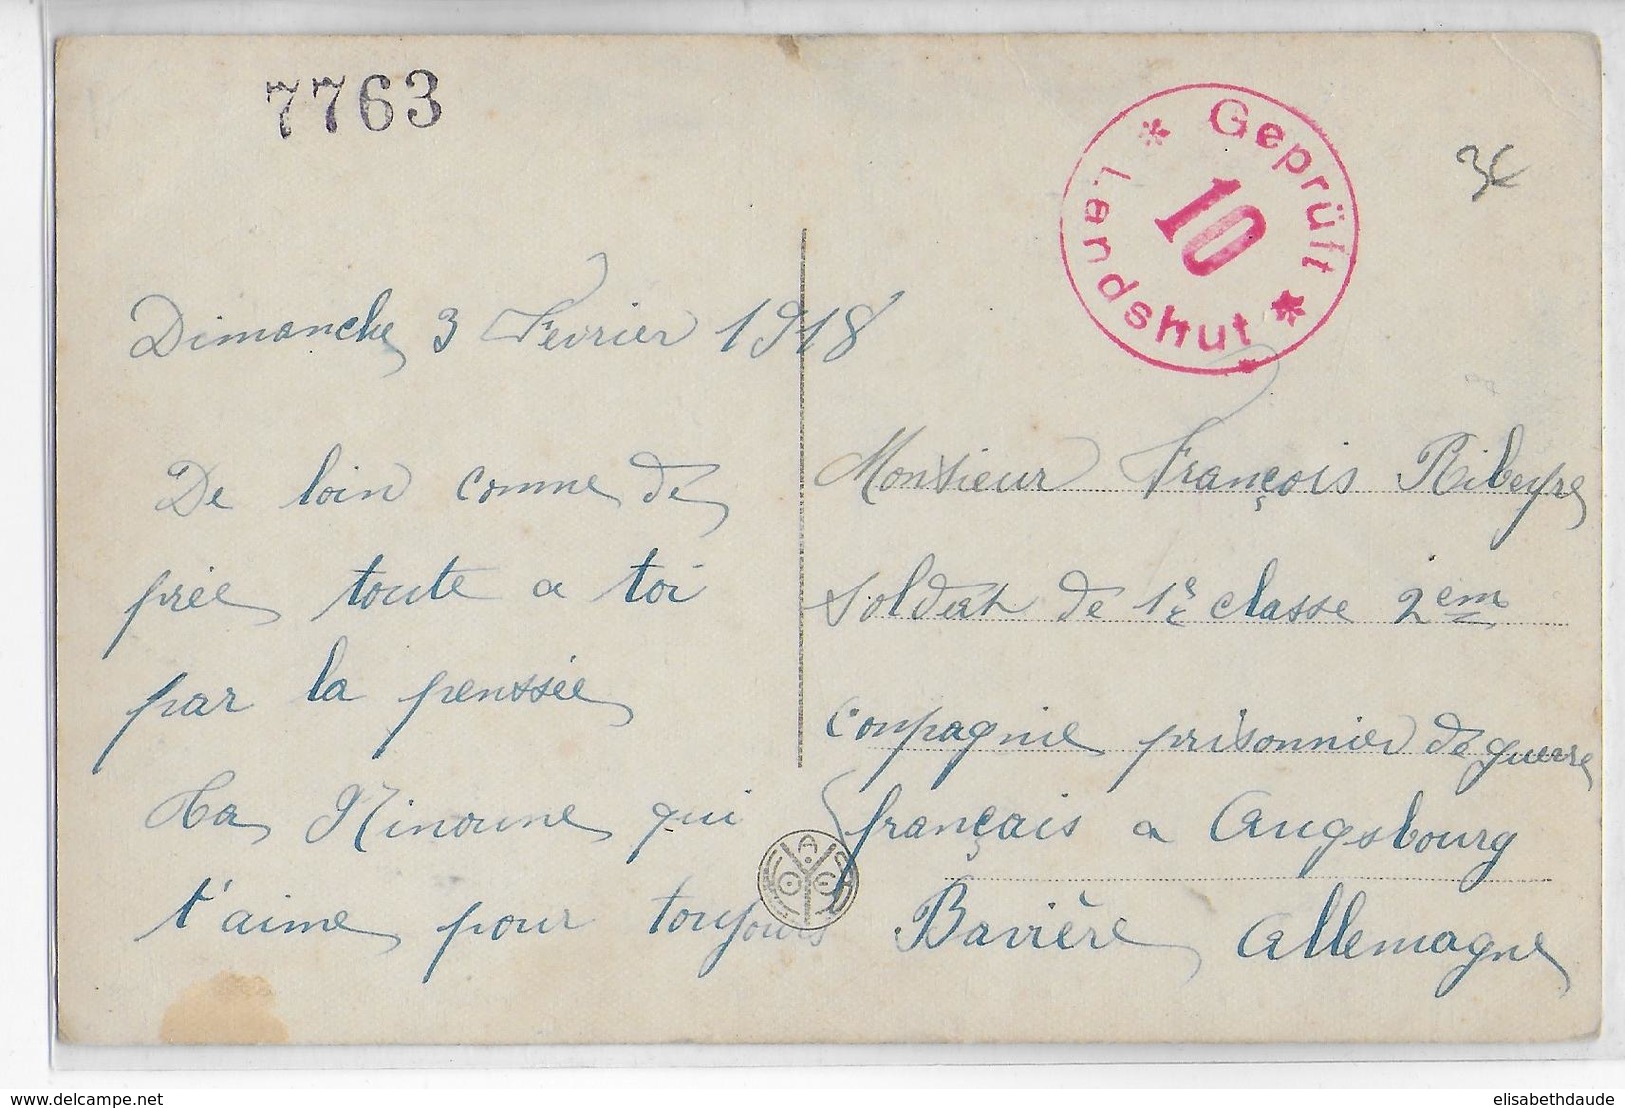 7763
Geprüft
10
Landshut
3€
Dimanche 3 Fevrier 1918
De loin comme de
près toute a toi
par la penssée
Ta Ninoune qui
t'aime pour toujours
Monsieur François Ribeyre
Soldat de 1re classe 2em
Conpagnie prisonnier de guerre
français a Augsbourg
Bavière Allemagne
www.delcampe.net
elisabethdaude